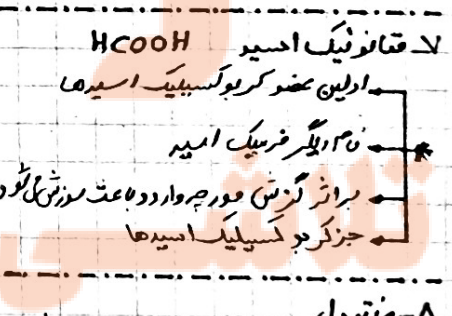 ۷- متانوئیک اسید HCOOH
اولین عضو کربوکسیلیک اسیدها
نام دیگر فرمیک اسید
براثر گزش مورچه وارد و باعث سوزش می‌شود
جز کربوکسیلیک اسیدها
۸-
تلاشی